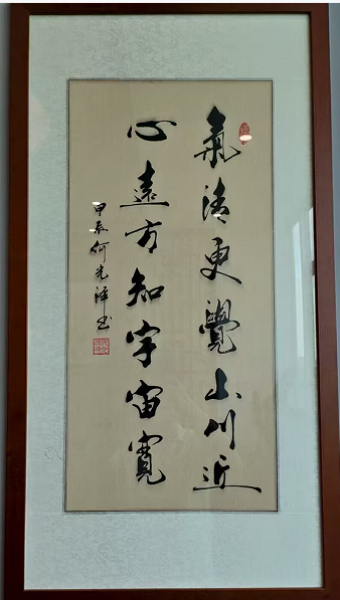 氣清更覺山川近
心遠方知宇宙寬
甲辰何光澤書